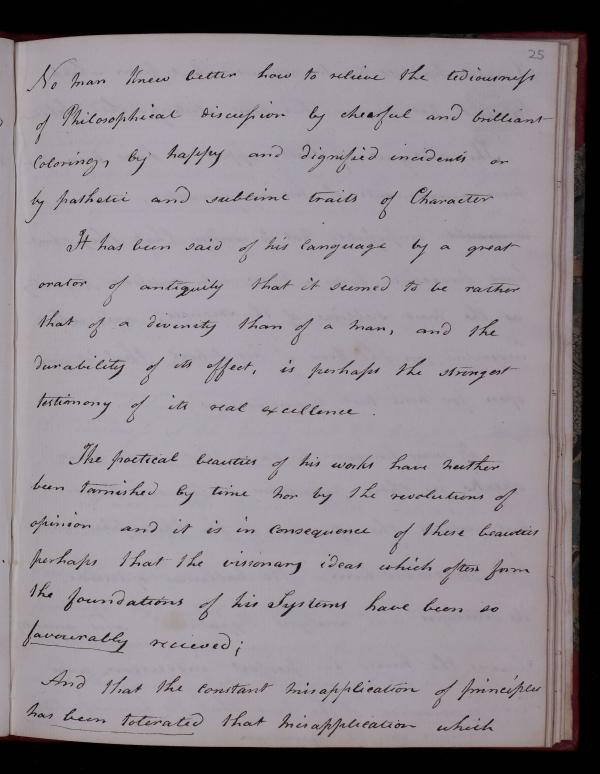 25
No man knew better how to relieve the tediousness
of Philosophical discussion by chearful and brilliant
Coloring, by happy and dignified incidents or
by pathetic and sublime traits of Character
It has been said of his language by a great
orator of antiquity that it seemed to be rather
that of a divinity than of a man, and the
durability of its effect, is perhaps the strongest
testimony of its real excellence.
The poetical beauties of his works have neither
been tarnished by time nor by the revolutions of
opinion and it is in consequence of these beauties
perhaps that the visionary ideas which often form
the foundations of his Systems have been so
favourably recieved;
And that the constant misapplication of principles
has been tolerated that misapplication which